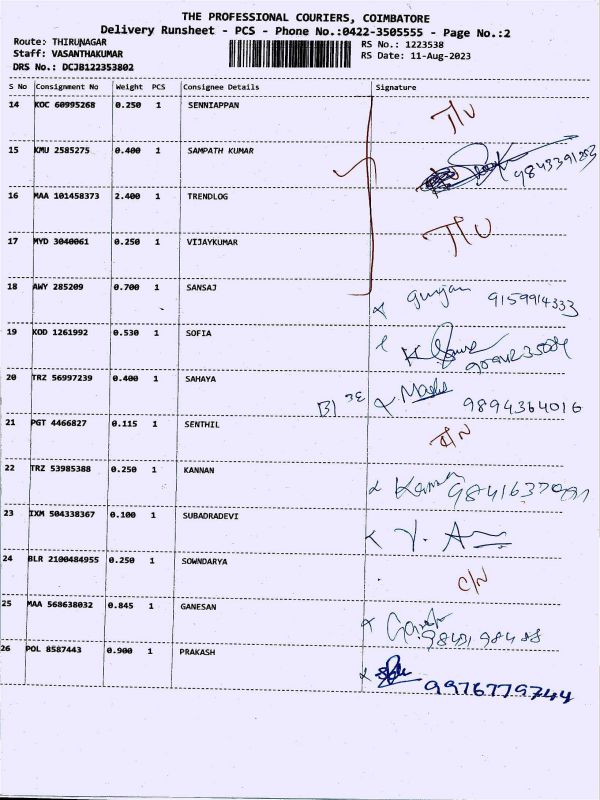 THE PROFESSIONAL COURIERS, COIMBATORE
Delivery Runsheet - PCS - Phone No.:0422-3505555 - Page No.:2
Route: THIRUNAGAR RS No.: 1223538
Staff: VASANTHAKUMAR RS Date: 11-Aug-2023
DRS No.: DCJB122353802
S No Consignment No Weight PCS Consignee Details Signature
14 KOC 60995268 0.250 1 SENNIAPPAN
15 KMU 2585275 0.400 1 SAMPATH KUMAR
16 MAA 101458373 2.400 1 TRENDLOG
17 MYD 3040061 0.250 1 VIJAYKUMAR
18 AWY 285209 0.700 1 SANSAJ 9159914333
19 KOD 1261992 0.530 1 SOFIA
20 TRZ 56997239 0.400 1 SAHAYA 9894364016
21 PGT 4466827 0.115 1 SENTHIL
22 TRZ 53985388 0.250 1 KANNAN
23 IXM 504338367 0.100 1 SUBADRADEVI
24 BLR 2100484955 0.250 1 SOWNDARYA C/N
25 MAA 568638032 0.845 1 GANESAN
26 POL 8587443 0.900 1 PRAKASH 9976779744